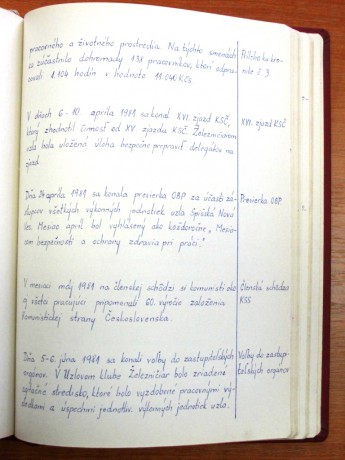 pracovného a životného prostredia. Na týchto smenách
sa zúčastnilo dohromady 131 pracovníkov, ktorí odpra-
covali 1.104 hodín v hodnote 11.040 Kčs.
Príloha ku kro-
nike č. 3
V dňoch 6.-10. apríla 1981 sa konal XVI. zjazd KSČ,
ktorý zhodnotil činnosť od XV. zjazdu KSČ. Železničnému
uzlu bola uložená úloha bezpečne prepraviť delegátov na
zjazd.
XVI. zjazd KSČ
Dňa apríla 1981 sa konala previerka OBP za účasti zá-
stupcov všetkých výkonných jednotiek uzla Spišská Nová
Ves. Mesiac apríl bol vyhlásený ako každoročne, "Mesia-
com bezpečnosti a ochrany zdravia pri práci."
Previerka OBP
V mesiaci máj 1981 na členskej schôdzi si komunisti ako
aj všetci pracujúci pripomenuli 60. výročie založenia
Komunistickej strany Československa.
Členská schôdza
KSS
Dňa 5.-6. júna 1981 sa konali voľby do zastupiteľských
orgánov. V Uzlovom klube Železničiar bolo zriadené
agitačné stredisko, ktoré bolo vyzdobené pracovnými vý-
sledkami a úspechmi jednotliv. výkonných jednotiek uzla.
Voľby do zastupi-
teľských orgánov